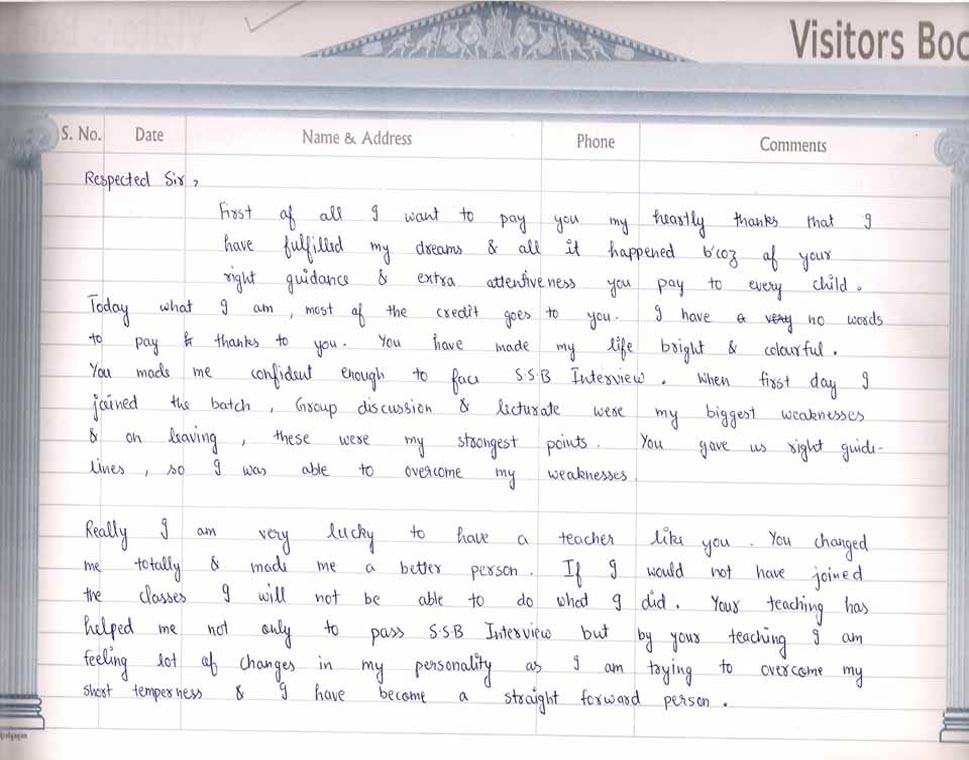 Visitors Boo
S. No. Date Name & Address Phone Comments
Respected Sir,
First of all I want to pay you my heartly thanks that I
have fulfilled my dreams & all it happened b'coz of your
right guidance & extra attentiveness you pay to every child.
Today what I am, most of the credit goes to you. I have a very no words
to pay thanks to you. You have made my life bright & colourful.
You made me confident enough to face S.S.B Interview. When first day I
joined the batch, Group discussion & lecturate were my biggest weaknesses
& on leaving, these were my strongest points. You gave us right guide-
lines, so I was able to overcome my weaknesses.
Really I am very lucky to have a teacher like you. You changed
me totally & made me a better person. If I would not have joined
the classes I will not be able to do what I did. Your teaching has
helped me not only to pass S.S.B Interview but by your teaching I am
feeling lot of changes in my personality as I am trying to overcome my
short temperness & I have become a straight forward person.